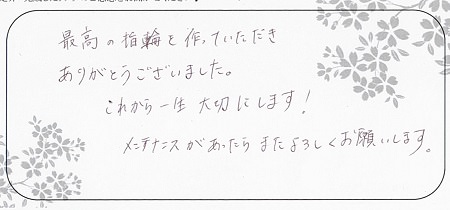 最高の指輪を作っていただき
ありがとうございました。
これから一生大切にします!
メンテナンスがあったらまたよろしくお願いします。